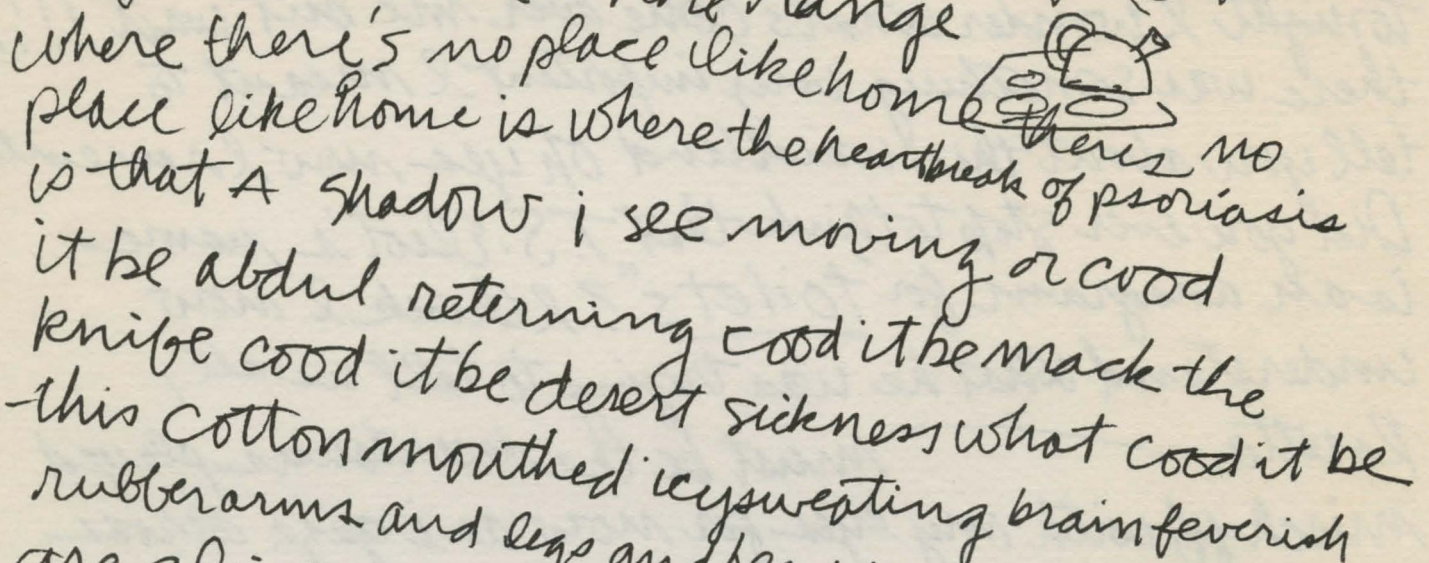 range
where there's no place like home theres no
place likehome is where the heartbreak of psoriasis
is that A shadow i see moving or cood
it be abdul returning cood it be mack the
knife cood it be desert sickness what cood it be
this cottonmouthed icysweating brainfeverish
rubberarms and legs